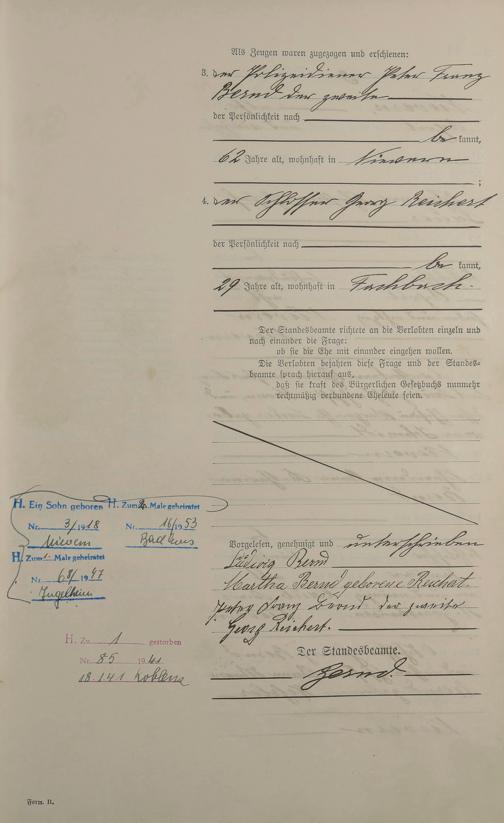 Als Zeugen waren zugezogen und erschienen:
3. der Polizeidiener Peter Franz
Bernd der zweite
der Persönlichkeit nach
be kannt,
62 Jahre alt, wohnhaft in Nievern
;
4. der Schlosser Georg Reichert
der Persönlichkeit nach
be kannt,
29 Jahre alt, wohnhaft in Fachbach.
Der Standesbeamte richtete an die Verlobten einzeln und
nach einander die Frage:
ob sie die Ehe mit einander eingehen wollen.
Die Verlobten bejahten diese Frage und der Standes-
beamte sprach hierauf aus,
daß sie kraft des Bürgerlichen Gesetzbuchs nunmehr
rechtmäßig verbundene Eheleute seien.
H. Ein Sohn geboren
Nr. 3/1918
Nievern
H. Zum 2. Male geheiratet
Nr. 16/1953
Bad Ems
H. Zum 1. Male geheiratet
Nr. 68/1947
Ingelheim
H. Zu 1 gestorben
Nr. 85 1941
18.1.41 Koblenz
Vorgelesen, genehmigt und unterschrieben
Ludwig Bernd
Martha Bernd geborene Reichert
Peter Franz Bernd der zweite
Georg Reichert.
Der Standesbeamte.
Bernd.
Form. B.